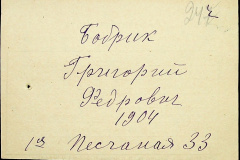 247
Бобрик
Григорий
Федрович
1904
1я Песчаная 33